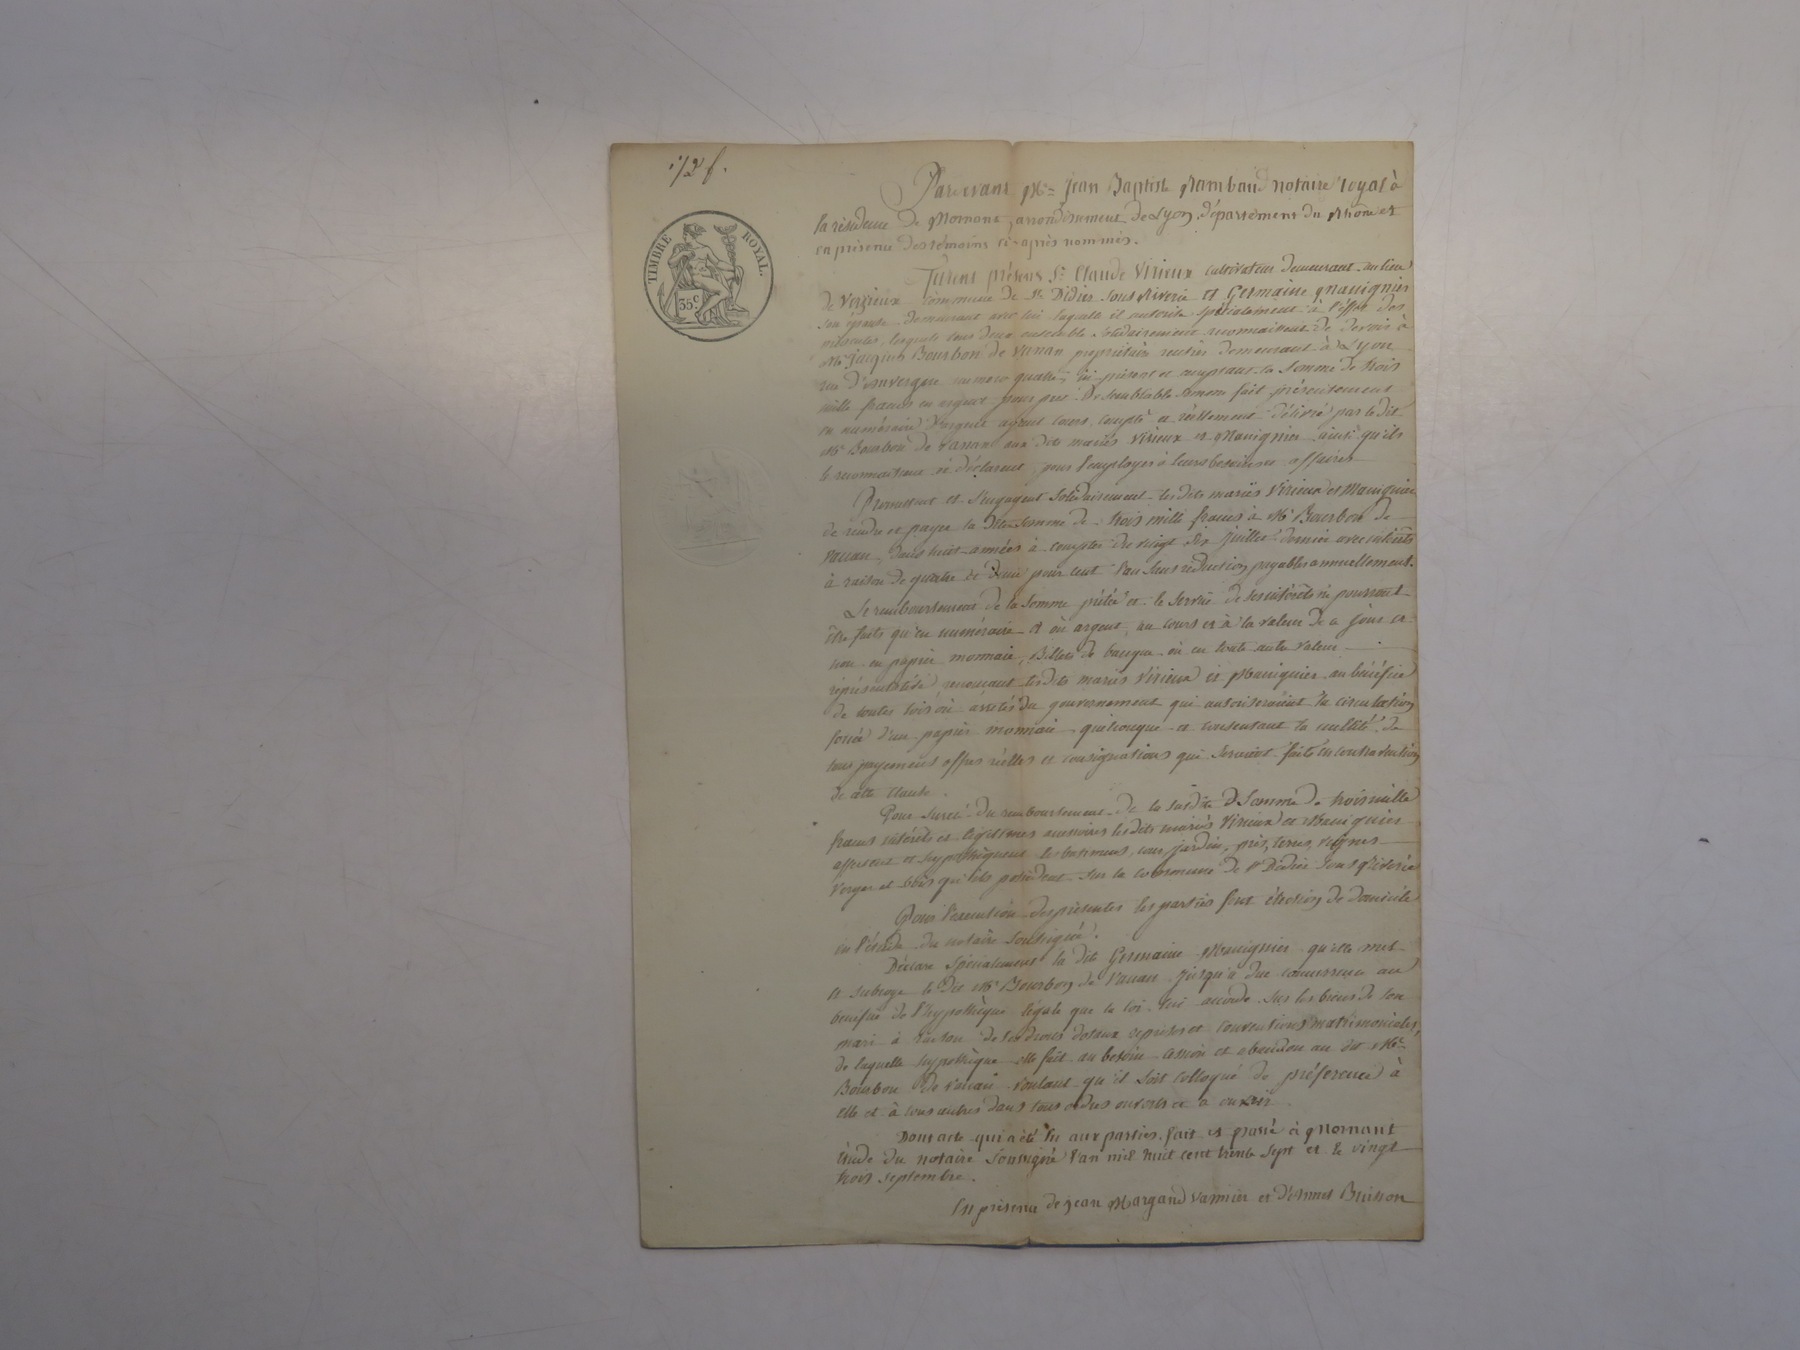 1/2 f.
TIMBRE ROYAL.
35c
Pardevant Me Jean Baptiste Rambaud notaire royal à
la résidence de Mornant, arrondissement de Lyon, département du Rhône et
en présence des témoins ci-après nommés.
Furent présens Sr. Claude Virieux cultivateur demeurant au lieu
de Verzieux commune de St. Didier sous Riverie et Germaine Mauiguier
son épouse demeurant avec lui laquelle il autorise spécialement à l'effet des
présentes, lesquels tous deux ensemble solidairement reconnaissent de devoir à
Mr. Jacques Bourbon de Vanan propriétaire rentier demeurant à Lyon
rue d'auvergne numero quatre, ici présent et acceptant la somme de trois
mille francs en argent pour prêt de semblable somme fait présentement
en numéraire d'argent ayant cours, compté et réellement délivré par le dit
Mr. Bourbon de Vanan aux dits mariés Virieux et Mauiguier ainsi qu'ils
le reconnaissent et déclarent, pour l'employer à leurs besoins et affaires
Promettent et s'engagent solidairement les dits mariés Virieux et Mauiguier
de rendre et payer la dite somme de trois mille francs à Mr. Bourbon de
Vanan, dans huit années à compter du vingt dix juillet dernier avec intérêts
à raison de quatre et demi pour cent l'an sans réduction payables annuellement.
Le remboursement de la somme prêtée et le service de ses intérêts ne pourront
être faits qu'en numéraire d'or ou argent, au cours et à la valeur de ce jour et
non en papier monnaie, Billets de banque ou en toute autre valeur
représentative, renonçant les dits mariés Virieux et Mauiguier au bénéfice
de toutes lois ou arrêtés du gouvernement qui autoriseraient la circulation
forcée d'un papier monnaie quelconque et consentant la nullité de
tous payemens offres réelles et consignations qui seraient faits en contravention
de cette clause.
Pour sureté du remboursement de la susdite somme de trois mille
francs intérêts et légitimes accessoires les dits mariés Virieux et Mauiguier
affectent et hypothèquent les batimens, cour, jardin, prés, terres, vignes
verger et bois qu'ils possèdent sur la commune de St Didier sous Riverie
Pour l'exécution des présentes les parties font élection de domicile
en l'étude du notaire soussigné.
Déclare spécialement la dite Germaine Mauiguier qu'elle met
et subroge le dit Mr. Bourbon de Vanan jusqu'à due concurrence au
bénéfice de l'hypothèque légale que la loi lui accorde sur les biens de son
mari à raison de ses droits dotaux reprises et conventions matrimoniales,
de laquelle hypothèque elle fait au besoin cession et abandon au dit Mr.
Bourbon de Vanan voulant qu'il soit colloqué de préférence à
elle et à tous autres dans tous ordres ouverts et à ouvrir
Dont acte qui a été lu aux parties. fait et passé à Mornant
étude du notaire soussigné l'an mil huit cent trente sept et le vingt
trois septembre.
En présence de jean Margand vannier et d'Annet Buisson